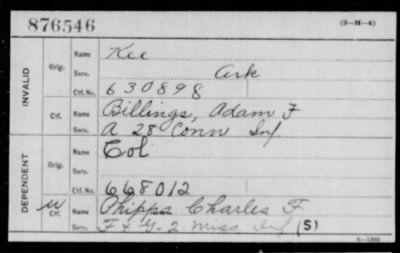 876546 (3-H-4)
INVALID
Orig. Name Kee
Serv. Ark
Ctf. No. 630898
Ctf. Name Billings, Adam F
Serv. A 28 Conn Inf
DEPENDENT
Orig. Name Col
Serv.
Ctf. No. 668012
Ctf. Name Phipps Charles F.
Serv. F & G-2 Miss Inf (S)